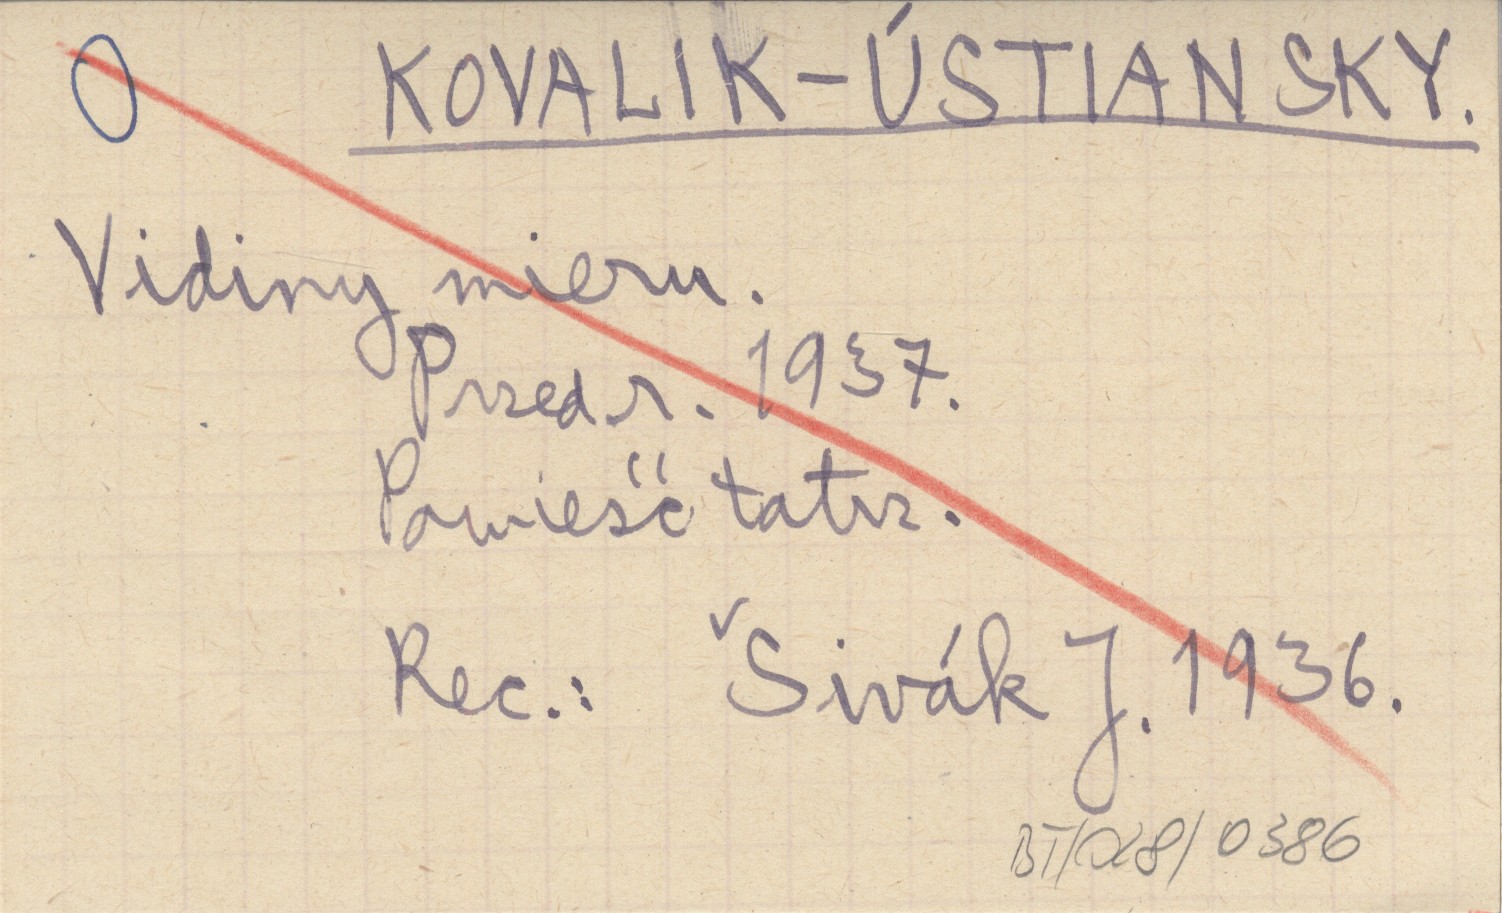 O KOVALIK-ÚSTIANSKY.
Vidiny mieru.
Przed r. 1937.
Powieść tatrz.
Rec.: Šivák J. 1936.
0386